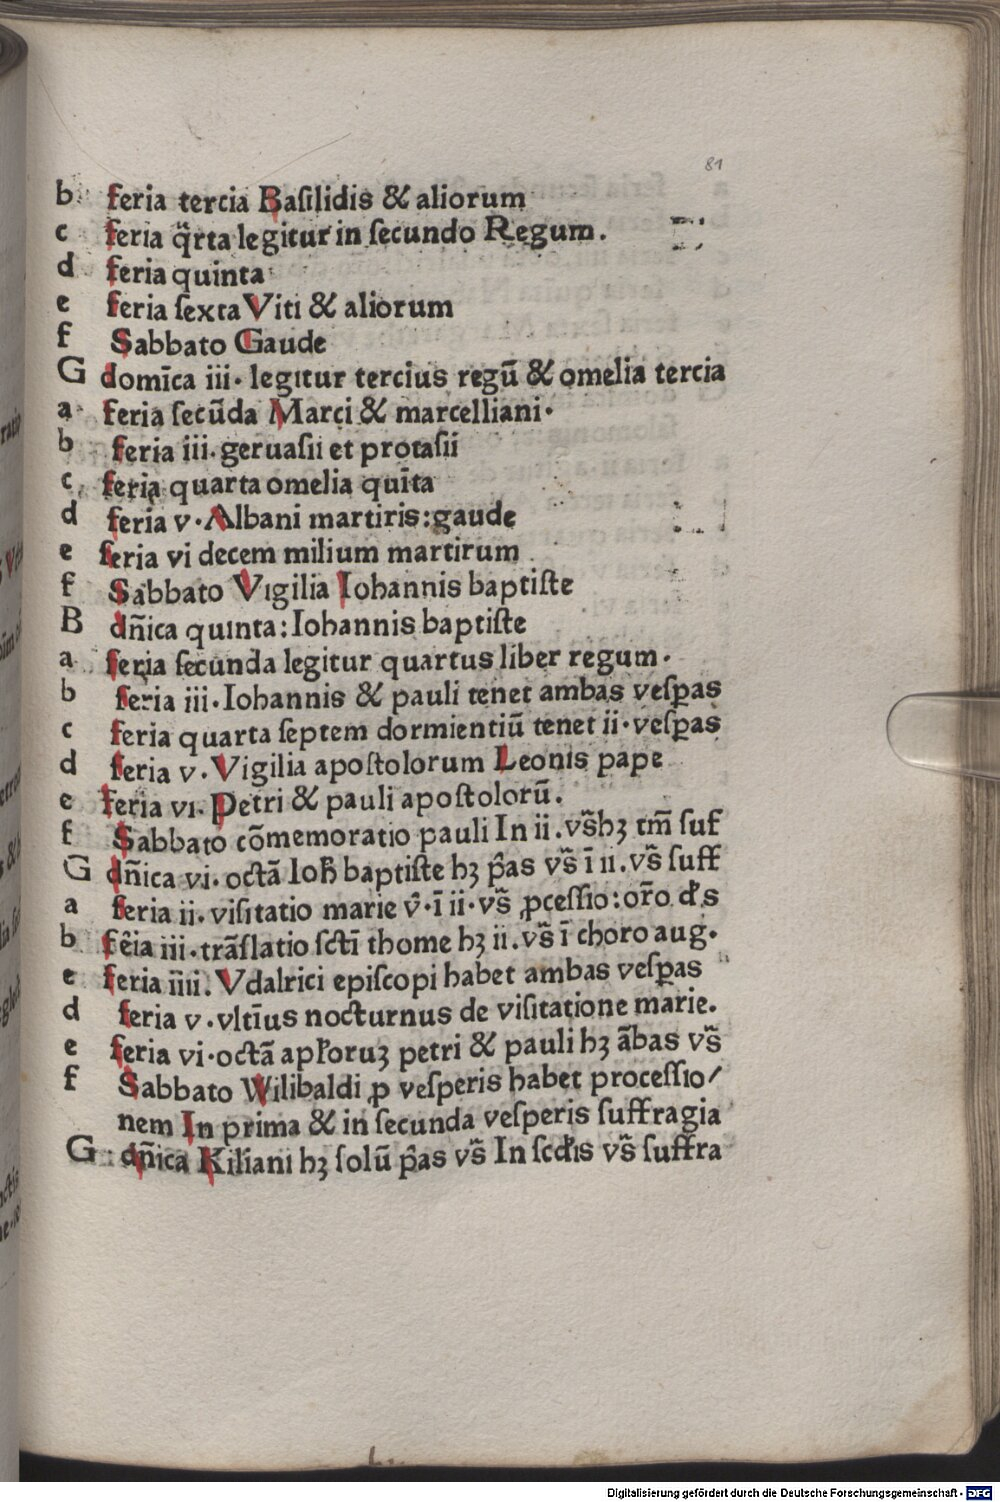 81
b feria tercia Baſilidis & aliorum
c feria q̈rta legitur in ſecundo Regum.
d feria quinta
e feria ſexta Viti & aliorum
f Sabbato Gaude
G domīca iii. legitur tercius regū & omelia tercia
a feria ſecūda Marci & marcelliani.
b feria iii. geruaſii et protaſii
c feria quarta omelia quīta
d feria v. Albani martiris: gaude
e feria vi decem milium martirum
f Sabbato Vigilia Iohannis baptiſte
B dn̄ica quinta: Iohannis baptiſte
a feria ſecunda legitur quartus liber regum.
b feria iii. Iohannis & pauli tenet ambas veſꝑas
c feria quarta ſeptem dormientiū tenet ii. veſꝑas
d feria v. Vigilia apoſtolorum Leonis pape
e feria vi. Petri & pauli apoſtolorū.
f Sabbato cōmemoratio pauli In ii. vs̄ hꝫ tm̄ ſuf
G dn̄ica vi. octā Ioh̄ baptiſte hꝫ p̄as vs̄ ī ii. vs̄ ſuff
a feria ii. viſitatio marie v̂. ī ii. vs̄ ꝓceſſio: or̄o d̓s
b fēia iii. trāſlatio ſctī thome hꝫ ii. vs̄ ī choro aug.
e feria iiii. Vdalrici epiſcopi habet ambas veſꝑas
d feria v. vltīus nocturnus de viſitatione marie.
e feria vi. octā apl̓oruꝫ petri & pauli hꝫ ābas vs̄
f Sabbato Wilibaldi ꝓ veſperis habet proceſſio/
nem In prima & in ſecunda veſperis ſuffragia
G dn̄ica Kiliani hꝫ ſolū p̄as vs̄ In ſcd̓is vs̄ ſuffra
Digitalisierung gefördert durch die Deutsche Forschungsgemeinschaft - DFG